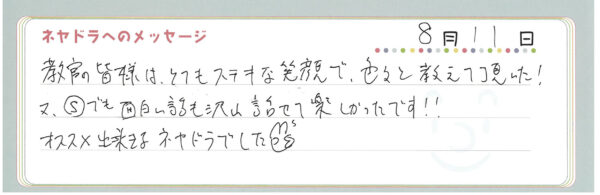 ネヤドラへのメッセージ
8月11日
教官の皆様は、とてもステキな笑顔で、色々と教えて頂いた!
又、Ⓢでも面白い話も沢山話せて楽しかったです!!
オススメ出来るネヤドラでした